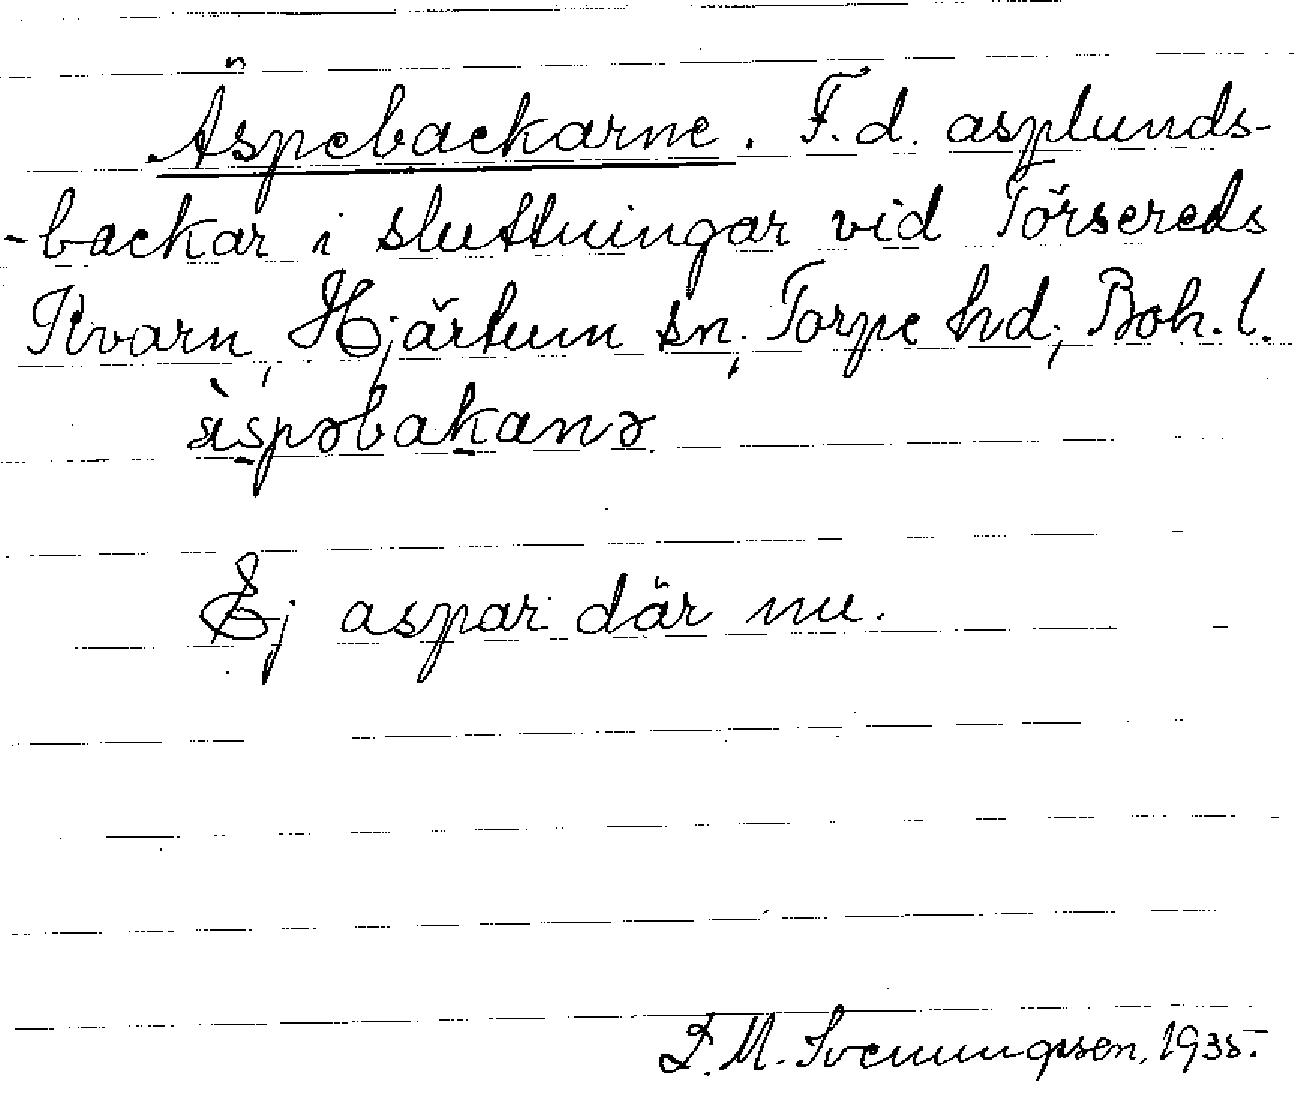 Äspebackarne. F. d. asplunds-
-backar i sluttningar vid Törsereds
Kvarn, Hjärtum sn, Torpe hd, Boh. l.
äspəbakanə
Ej aspar där nu.
D. M. Svenungsson, 1935.